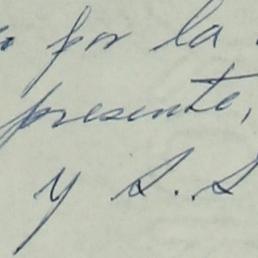 por la
presente,
y S. S